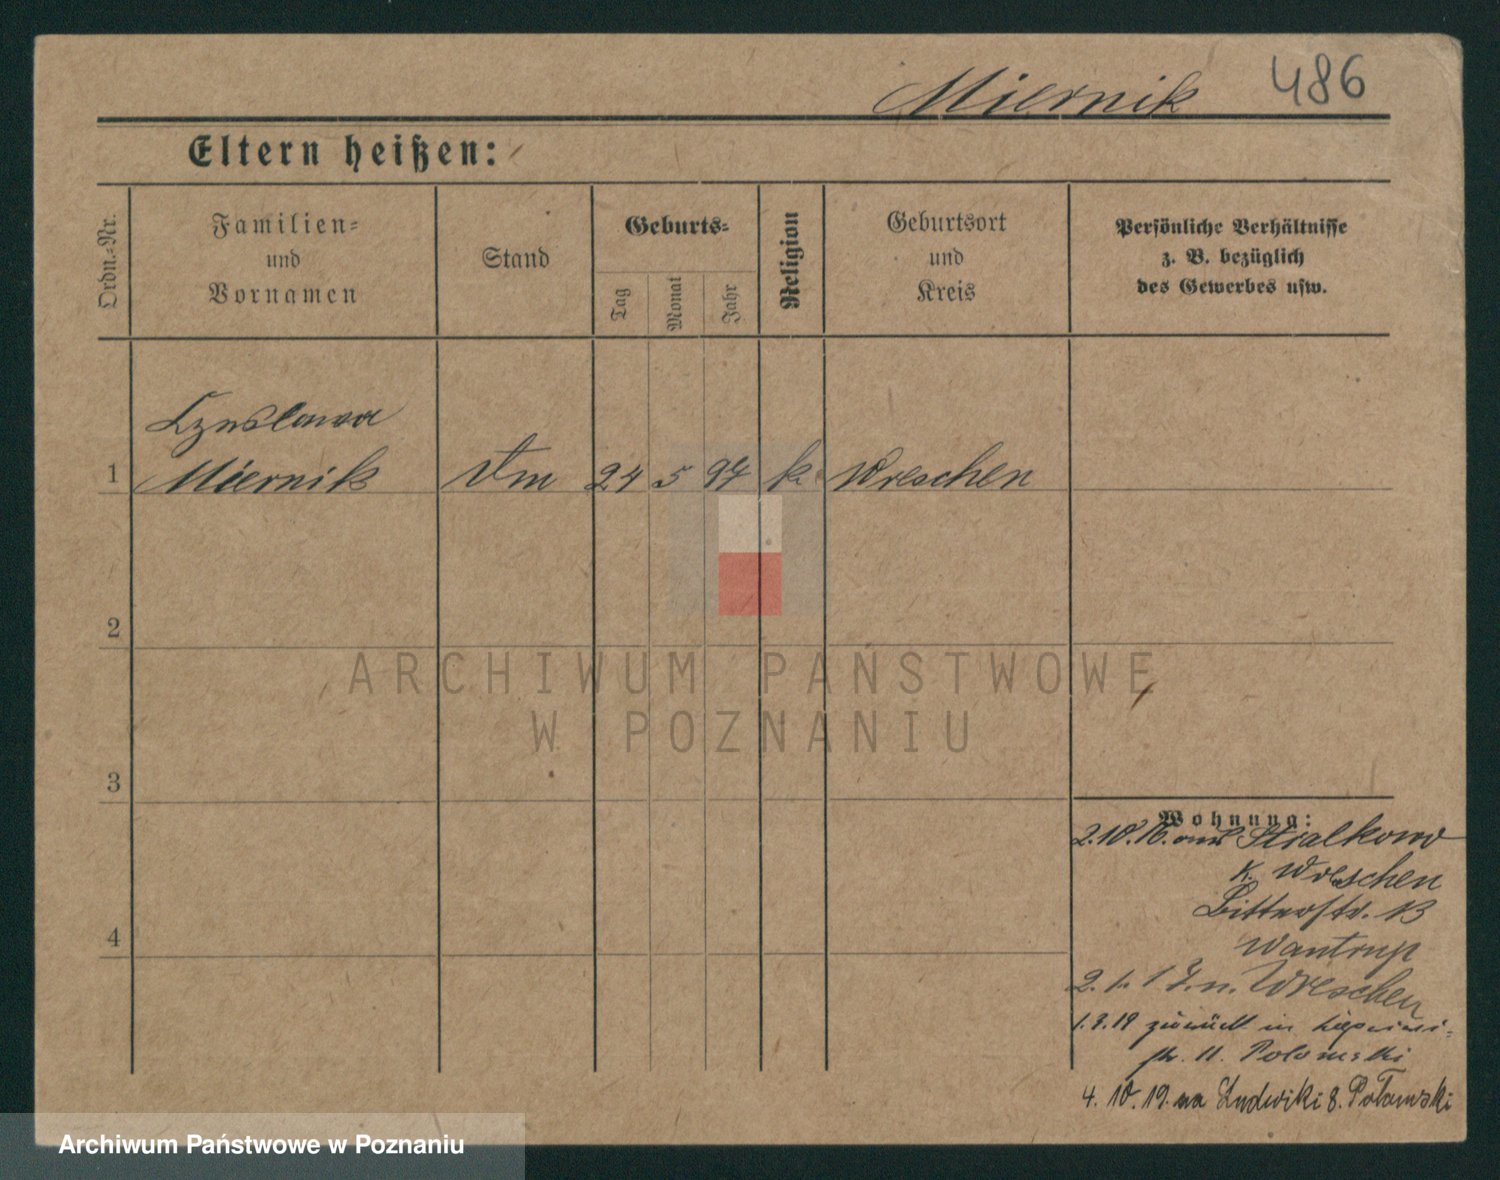 Miernik 486
Eltern heißen:
Ordn.-Nr.
Familien-
und
Vornamen
Stand
Geburts-
Tag
Monat
Jahr
Religion
Geburtsort
und
Kreis
Persönliche Verhältnisse
z. B. bezüglich
des Gewerbes usw.
1
Miernik
24 5 97 k. Wreschen
2
3
4
ARCHIWUM PAŃSTWOWE
W POZNANIU
Wohnung:
2.10.16. aus Stralkowo
K. Wreschen
13
Wantrup
2.1.17. n. Wreschen
1.3.19 zurück in
str. 11. Polomski
4. 10. 19. na Ludwiki 8. Połomski
Archiwum Państwowe w Poznaniu